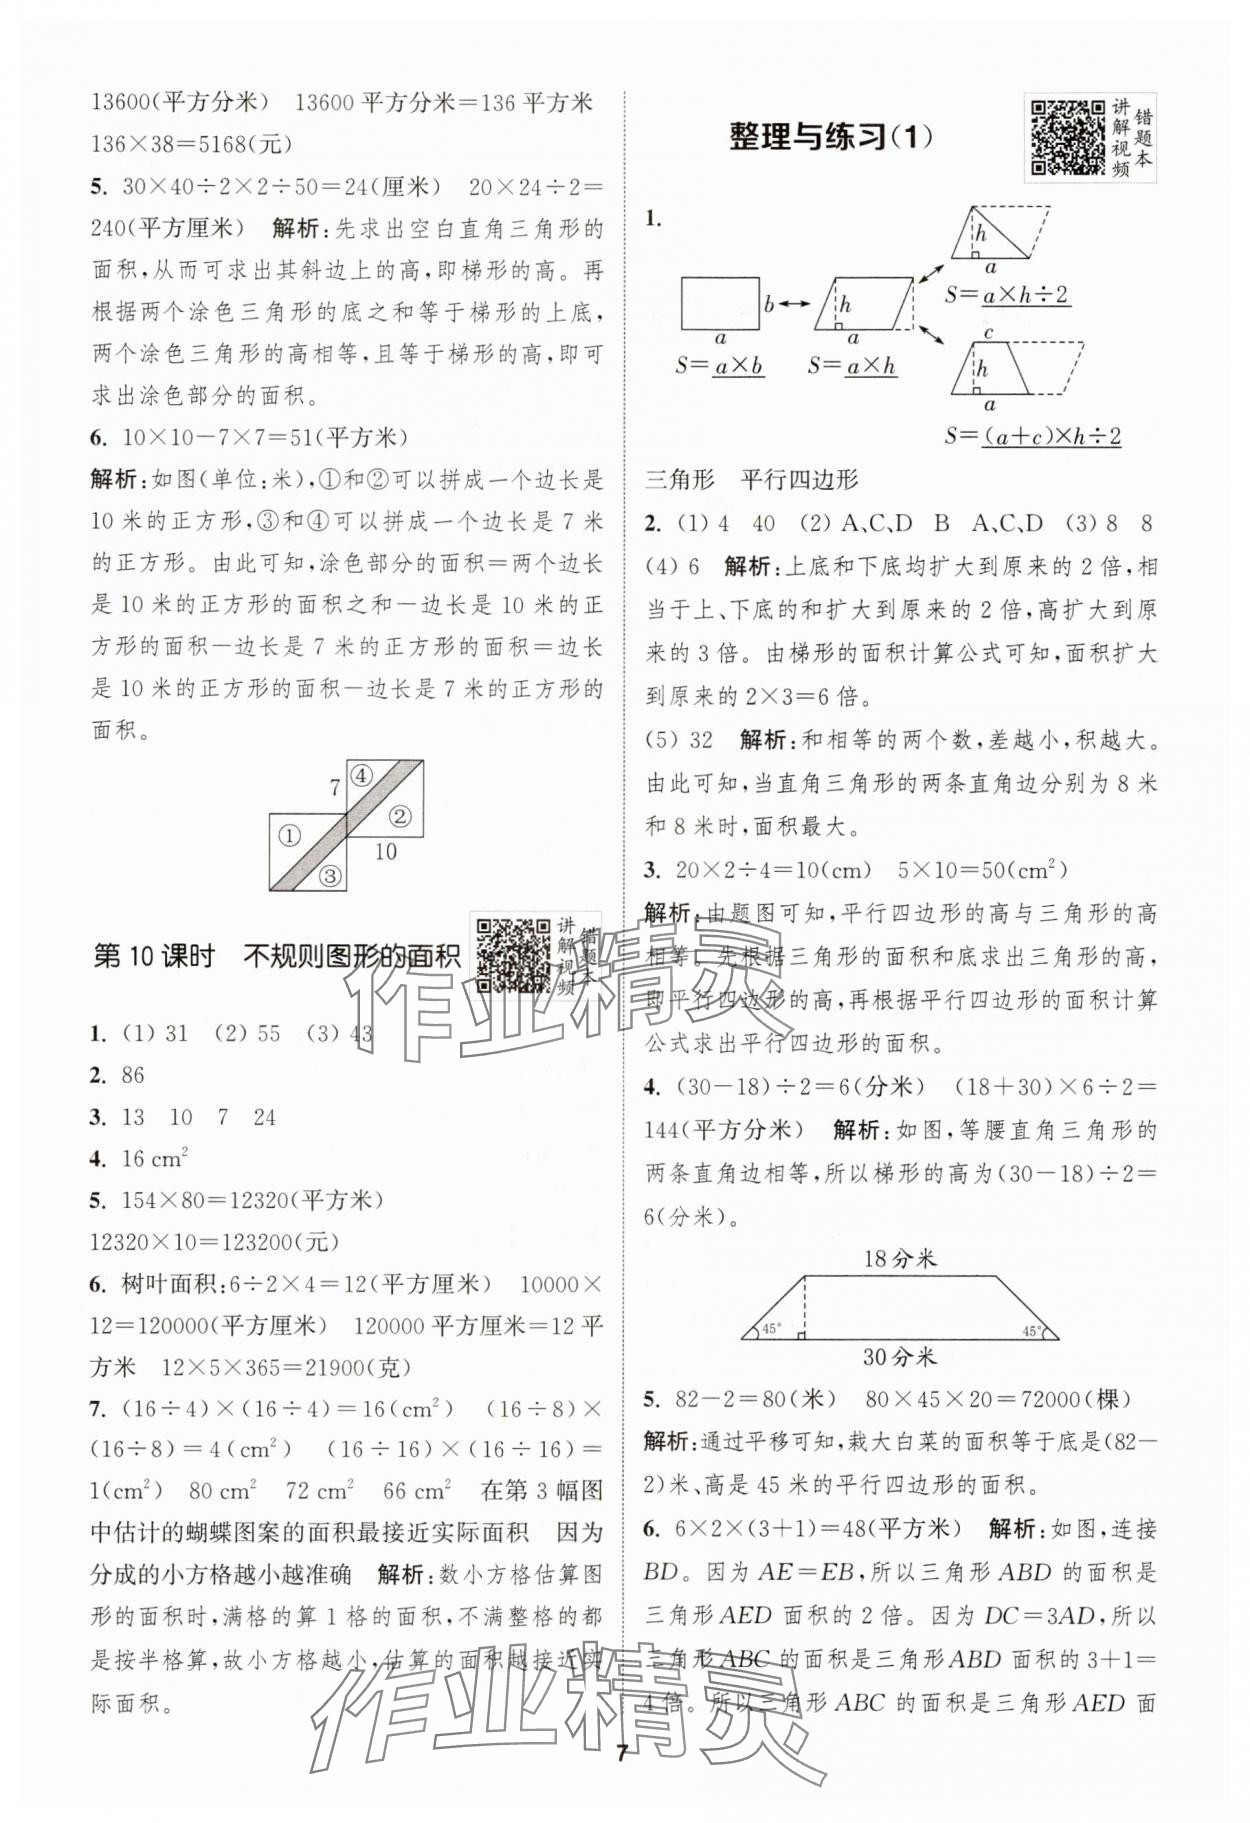 13600(平方分米)　13600 平方分米=136 平方米
136×38=5168(元)
5. 30×40÷2×2÷50=24(厘米)　20×24÷2=
240(平方厘米)　解析:先求出空白直角三角形的
面积,从而可求出其斜边上的高,即梯形的高。再
根据两个涂色三角形的底之和等于梯形的上底,
两个涂色三角形的高相等,且等于梯形的高,即可
求出涂色部分的面积。
6. 10×10-7×7=51(平方米)
解析:如图(单位:米),①和②可以拼成一个边长是
10 米的正方形,③和④可以拼成一个边长是 7 米
的正方形。由此可知,涂色部分的面积=两个边长
是 10 米的正方形的面积之和-边长是 10 米的正
方形的面积-边长是 7 米的正方形的面积=边长
是 10 米的正方形的面积-边长是 7 米的正方形的
面积。
7
④
①
②
10
③
第 10 课时　不规则图形的面积
讲解视频
错题本
1. (1) 31　(2) 55　(3) 43
2. 86
3. 13　10　7　24
4. 16 cm²
5. 154×80=12320(平方米)
12320×10=123200(元)
6. 树叶面积:6÷2×4=12(平方厘米)　10000×
12=120000(平方厘米)　120000 平方厘米=12 平
方米　12×5×365=21900(克)
7. (16÷4)×(16÷4)=16(cm²)　(16÷8)×
(16÷8)=4(cm²)　(16÷16)×(16÷16)=
1(cm²)　80 cm²　72 cm²　66 cm²　在第 3 幅图
中估计的蝴蝶图案的面积最接近实际面积　因为
分成的小方格越小越准确　解析:数小方格估算图
形的面积时,满格的算 1 格的面积,不满整格的都
是按半格算,故小方格越小,估算的面积越接近实
际面积。
整理与练习(1)
讲解视频
错题本
1.
h
a
S=a×h÷2
b
a
S=a×b
h
a
S=a×h
c
h
a
S=(a+c)×h÷2
三角形　平行四边形
2. (1) 4　40　(2) A、C、D　B　A、C、D　(3) 8　8
(4) 6　解析:上底和下底均扩大到原来的 2 倍,相
当于上、下底的和扩大到原来的 2 倍,高扩大到原
来的 3 倍。由梯形的面积计算公式可知,面积扩大
到原来的 2×3=6 倍。
(5) 32　解析:和相等的两个数,差越小,积越大。
由此可知,当直角三角形的两条直角边分别为 8 米
和 8 米时,面积最大。
3. 20×2÷4=10(cm)　5×10=50(cm²)
解析:由题图可知,平行四边形的高与三角形的高
相等。先根据三角形的面积和底求出三角形的高,
即平行四边形的高,再根据平行四边形的面积计算
公式求出平行四边形的面积。
4. (30-18)÷2=6(分米)　(18+30)×6÷2=
144(平方分米)　解析:如图,等腰直角三角形的
两条直角边相等,所以梯形的高为(30-18)÷2=
6(分米)。
18 分米
45°
45°
30 分米
5. 82-2=80(米)　80×45×20=72000(棵)
解析:通过平移可知,栽大白菜的面积等于底是(82-
2)米、高是 45 米的平行四边形的面积。
6. 6×2×(3+1)=48(平方米)　解析:如图,连接
BD。因为 AE=EB,所以三角形 ABD 的面积是
三角形 AED 面积的 2 倍。因为 DC=3AD,所以
三角形 ABC 的面积是三角形 ABD 面积的 3+1=
4 倍。所以三角形 ABC 的面积是三角形 AED 面
作业精灵
作业精灵
7